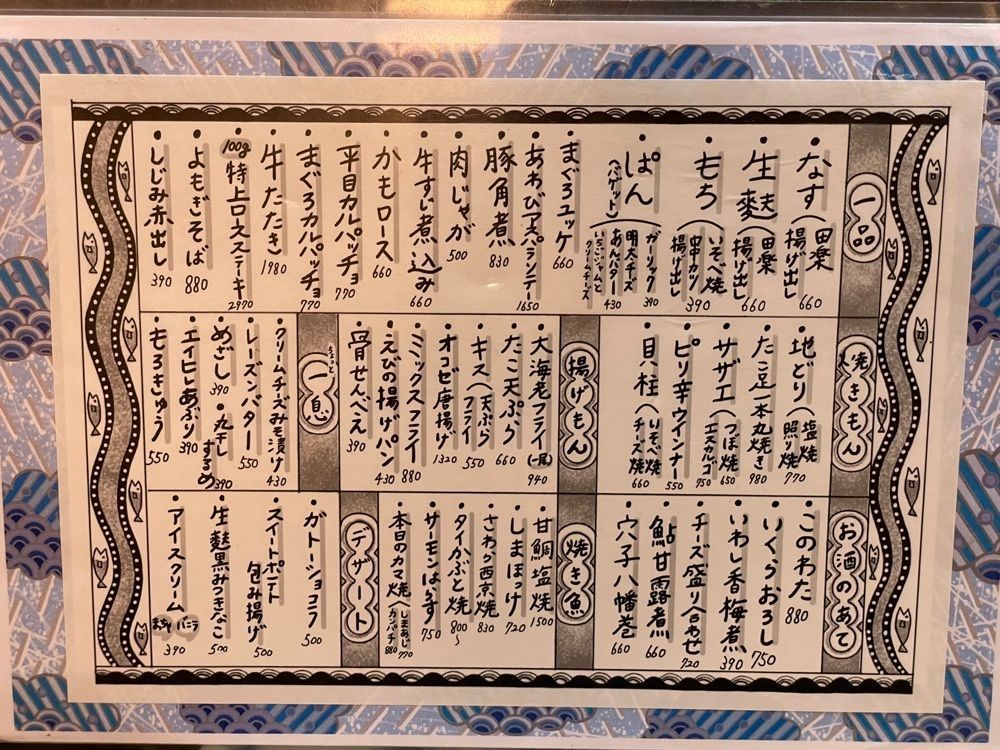 一品
・なす(田楽 揚げ出し 660
・生麩(田楽 揚げ出し 660
・もち(いそべ焼 串カツ 揚げ出し 390
・ぱん(バゲット)(ガーリック 390 明太チーズ あんバター いちごジャムとクリームチーズ 430
・まぐろユッケ 660
・あわびアスパランテー 1650
・豚角煮 830
・肉じゃが 500
・牛すじ煮込み 660
・かもロース 660
・平目カルパッチョ 770
・まぐろカルパッチョ 770
・牛たたき 1980
・100g特上ロースステーキ 2970
・よもぎそば 880
・しじみ赤出し 390
焼きもん
・地どり(塩焼 照り焼 770
・たこ足一本丸焼き 980
・サザエ(つぼ焼 650 エスカルゴ 750
・ピリ辛ウインナー 550
・貝柱(いそべ焼 チーズ焼 660
揚げもん
・大海老フライ(一尾) 940
・たこ天ぷら 660
・キス(天ぷら フライ 550
・オコゼ唐揚げ 1320
・ミックスフライ 880
・えびの揚げパン 430
・骨せんべえ 390
ちょっと一息
・クリームチーズみそ漬け 430
・レーズンバター 550
・めざし 390
・丸干しするめ 390
・エイヒレあぶり 390
・もろきゅう 550
お酒のあて
・このわた 880
・いくらおろし 750
・いわし香梅煮 390
・チーズ盛り合わせ 720
・鮎甘露煮 660
・穴子八幡巻 660
焼き魚
・甘鯛塩焼 1500
・しまほっけ 720
・さわら西京焼 830
・タイかぶと焼 800〜
・サーモンはらす 750
・本日のカマ焼(しまあじ 770 カンパチ 880
デザート
・ガトーショコラ 500
・スイートポテト包み揚げ 500
・生麩黒みつきなこ 500
・アイスクリーム 抹茶 バニラ 390